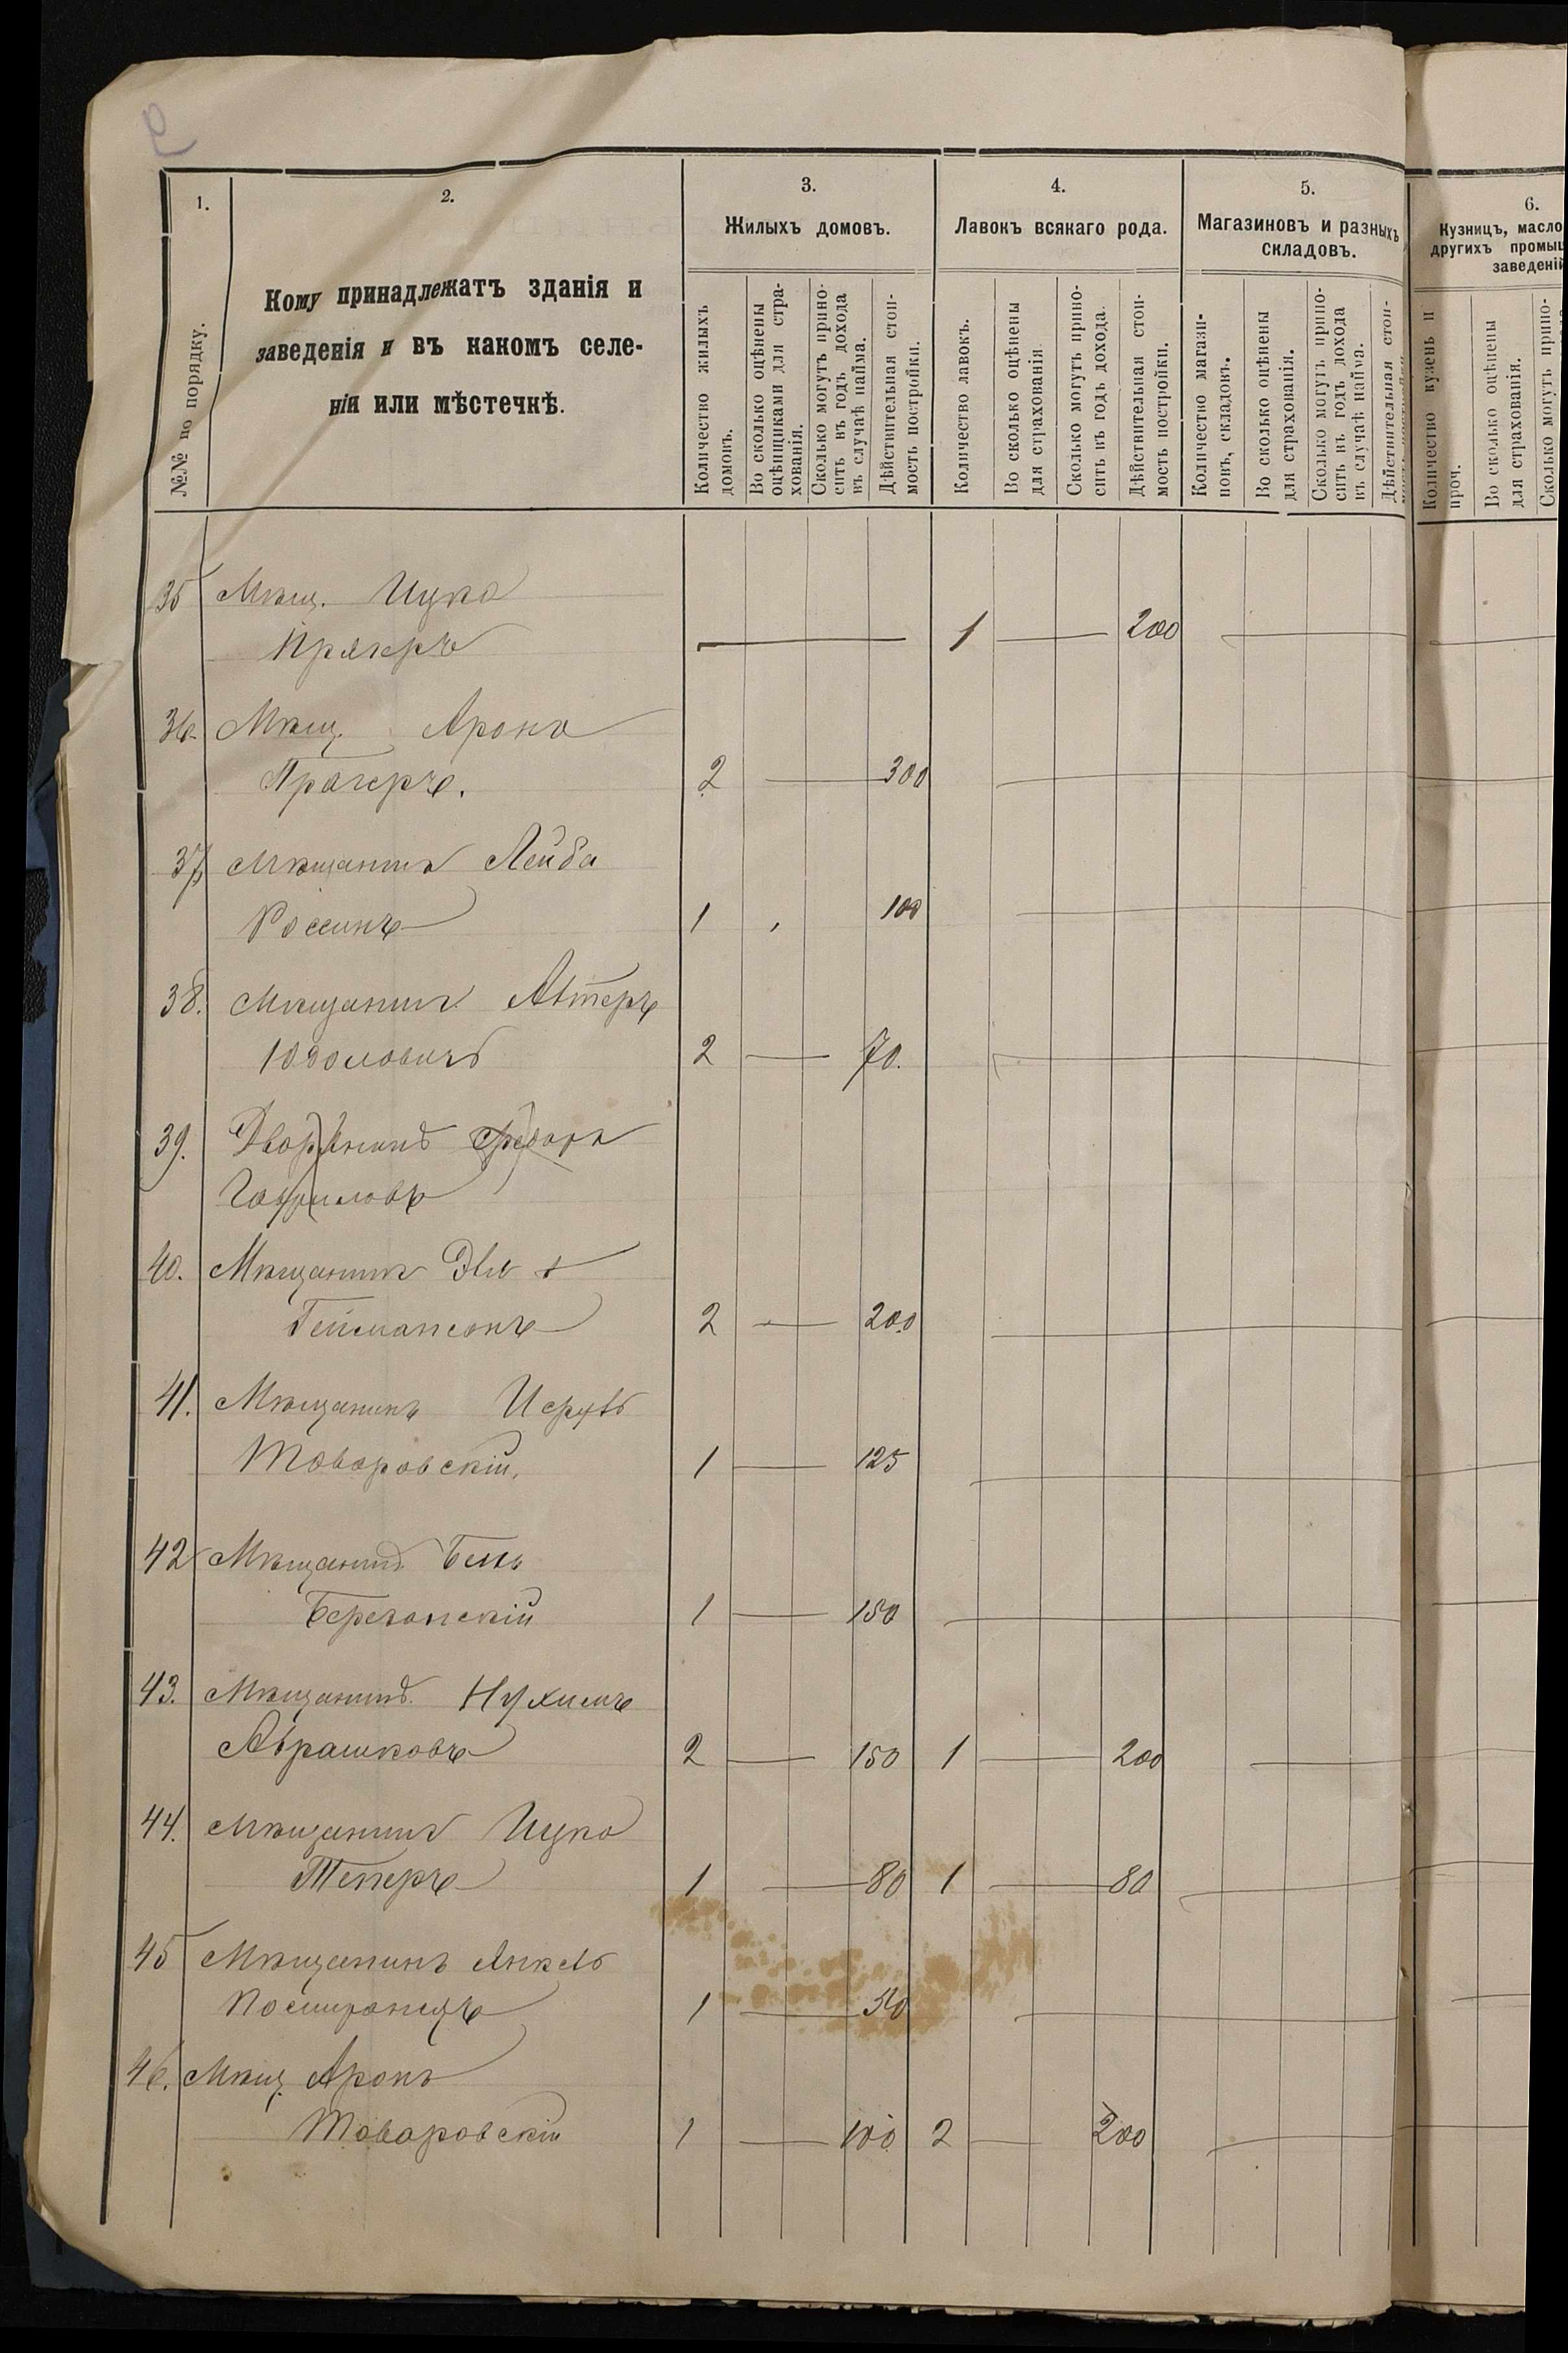 9
1.
№№ по порядку.
2.
Кому принадлежатъ зданія и
заведенія и въ какомъ селе-
ніи или мѣстечкѣ.
3.
Жилыхъ домовъ.
Количество жилыхъ
домовъ.
Во сколько оцѣнены
оцѣнщиками для стра-
хованія.
Сколько могутъ прино-
сить въ годъ дохода
въ случаѣ найма.
Дѣйствительная стои-
мость постройки.
4.
Лавокъ всякаго рода.
Количество лавокъ.
Во сколько оцѣнены
для страхованія
Сколько могутъ прино-
сить въ годъ дохода.
Дѣйствительная стои-
мость постройки.
5.
Магазиновъ и разныхъ
складовъ.
Количество магази-
новъ, складовъ.
Во сколько оцѣнены
для страхованія.
Сколько могутъ прино-
сить въ годъ дохода
въ случаѣ найма.
Дѣйствительная стои-
6.
Кузницъ, масло
другихъ промыш
заведеній
Количество кузень и
проч.
Во сколько оцѣнены
для страхованія.
Сколько могутъ прино-
35 Мѣщ. Ицко
1 200
36. Мѣщ. Аронъ
Прагеръ. 2 300
37. Мѣщанинъ Лейба
Россинъ 1 100
38. Мѣщанинъ Альтеръ
Юдоловичъ 2 70.
39. Дворянинъ Федоръ
Гавриловъ
40. Мѣщанинъ
Геймансонъ 2 200
41. Мѣщанинъ Исруль
Товаровскій. 1 125
42 Мѣщанинъ
Березанскій 1 150
43. Мѣщанинъ Нухимъ
Аврашковъ 2 150 1 200
44. Мѣщанинъ Ицко
Теперъ 1 80 1 80
45 Мѣщанинъ Янкель
1 50
46. Мѣщ. Аронъ
Товаровскій 1 100 2 200